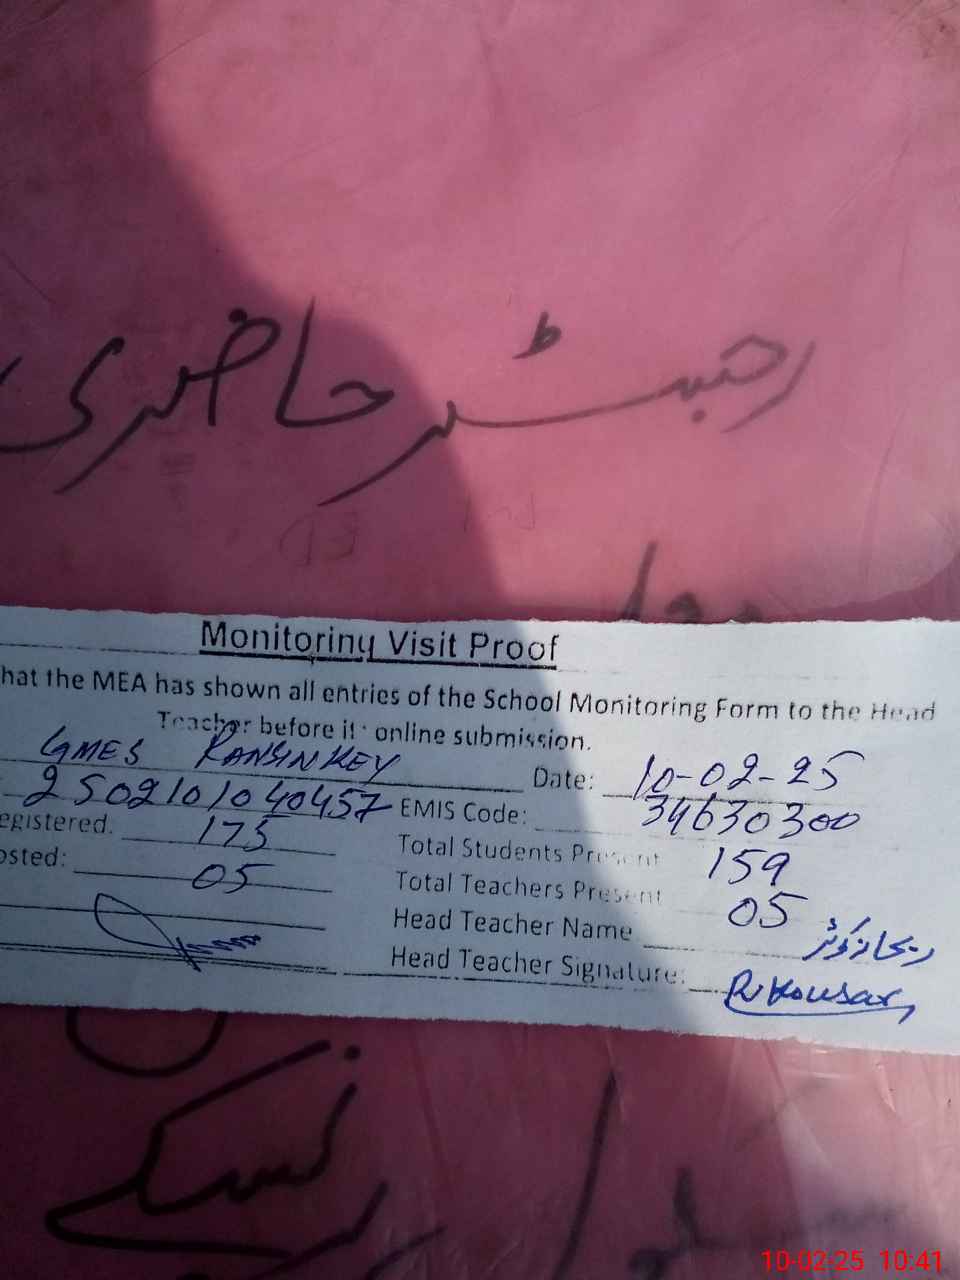 رجسٹر حاضری
Monitoring Visit Proof
hat the MEA has shown all entries of the School Monitoring Form to the Head
Teacher before it online submission.
GMES RANSINKEY Date: 10-02-25
2502101040457 EMIS Code: 34630300
egistered. 175 Total Students Present 159
osted: 05 Total Teachers Present 05
Head Teacher Name ریحانہ کوثر
Head Teacher Signature: R Kousar
10-02-25 10:41